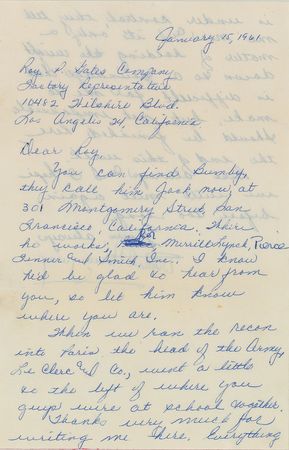 January 15, 1961
Roy P. Gates Company
Factory Representative
10482 Wilshire Blvd.
Los Angeles 24, California
Dear Roy,
You can find Gumby,
they call him Jock now, at
301 Montgomery Street, San
Francisco, California. There
he works, for Merrill Lynch, Pierce
Fenner and Smith Inc. I know
he'd be glad to hear from
you, so let him know
where you are.
When we ran the recon
into Paris the head of the Army,
Le Clerc and Co., went a little
to the left of where you
guys were at school together.
Thanks very much for
writing me there. Everything